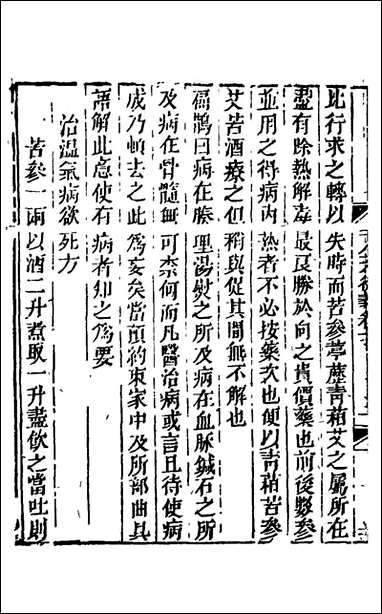 比行求之轉以失時而苦參葶藶青葙艾之屬所在
盡有除熱解毒最良勝於向之貴價藥也前後數參
並用之得病內熱者不必按藥次也便以青葙苦參
艾苦酒療之但稍與促其間無不解也
扁鵲曰病在腠理湯熨之所及病在血脉鍼石之所
及病在骨髓無可柰何而凡醫治病或言且待使病
成乃頓去之此為妄矣當預約束家中及所部曲具
語解此意使有病者知之為要
治溫氣病欲死方
苦參一兩以酒二升煮取一升盡飲之當吐則